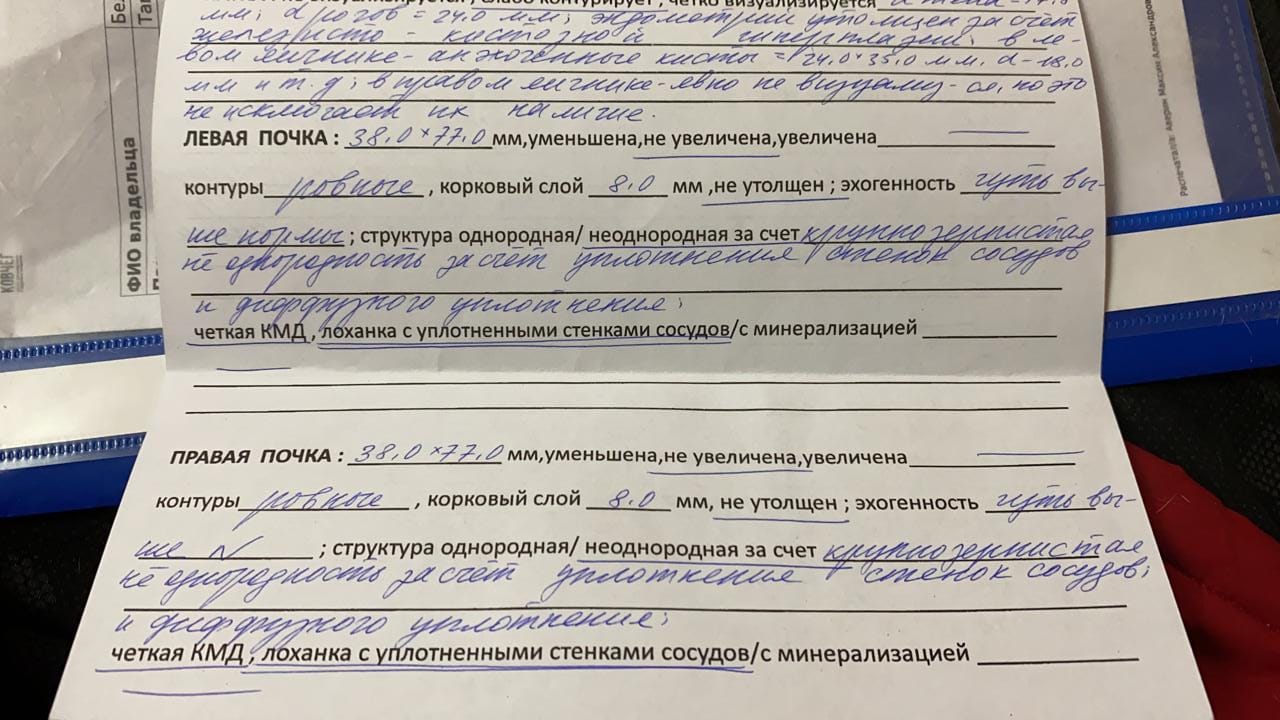 не визуализируется / слабо контурирует, четко визуализируется d тела = 17.8
мм; d рогов = 24.0 мм; эндометрий утолщен за счет
железисто - кистозной гиперплазии; в ле-
вом яичнике - анэхогенные кисты = 24.0 * 35.0 мм. d - 18.0
мм и т.д; в правом яичнике - явно не визуализ - ся, но это
не исключает их наличие.
ЛЕВАЯ ПОЧКА : 38.0 × 77.0 мм,уменьшена,не увеличена,увеличена
контуры ровные , корковый слой 8.0 мм ,не утолщен ; эхогенность чуть вы-
ше нормы ; структура однородная/ неоднородная за счет крупнозернистая
неоднородность за счёт уплотнения стенок сосудов
и диффузного уплотнения;
четкая КМД , лоханка с уплотненными стенками сосудов/с минерализацией
ПРАВАЯ ПОЧКА : 38.0 × 77.0 мм,уменьшена,не увеличена,увеличена
контуры ровные , корковый слой 8.0 мм, не утолщен ; эхогенность чуть вы-
ше N ; структура однородная/ неоднородная за счет крупнозернистая
неоднородность за счёт уплотнения стенок сосудов;
и диффузного уплотнения;
четкая КМД , лоханка с уплотненными стенками сосудов/с минерализацией
ФИО владельца
КОВЧЕГ
Распечатал/а: Аверян Максим Александров